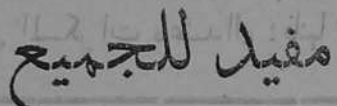 مفيد للجميع